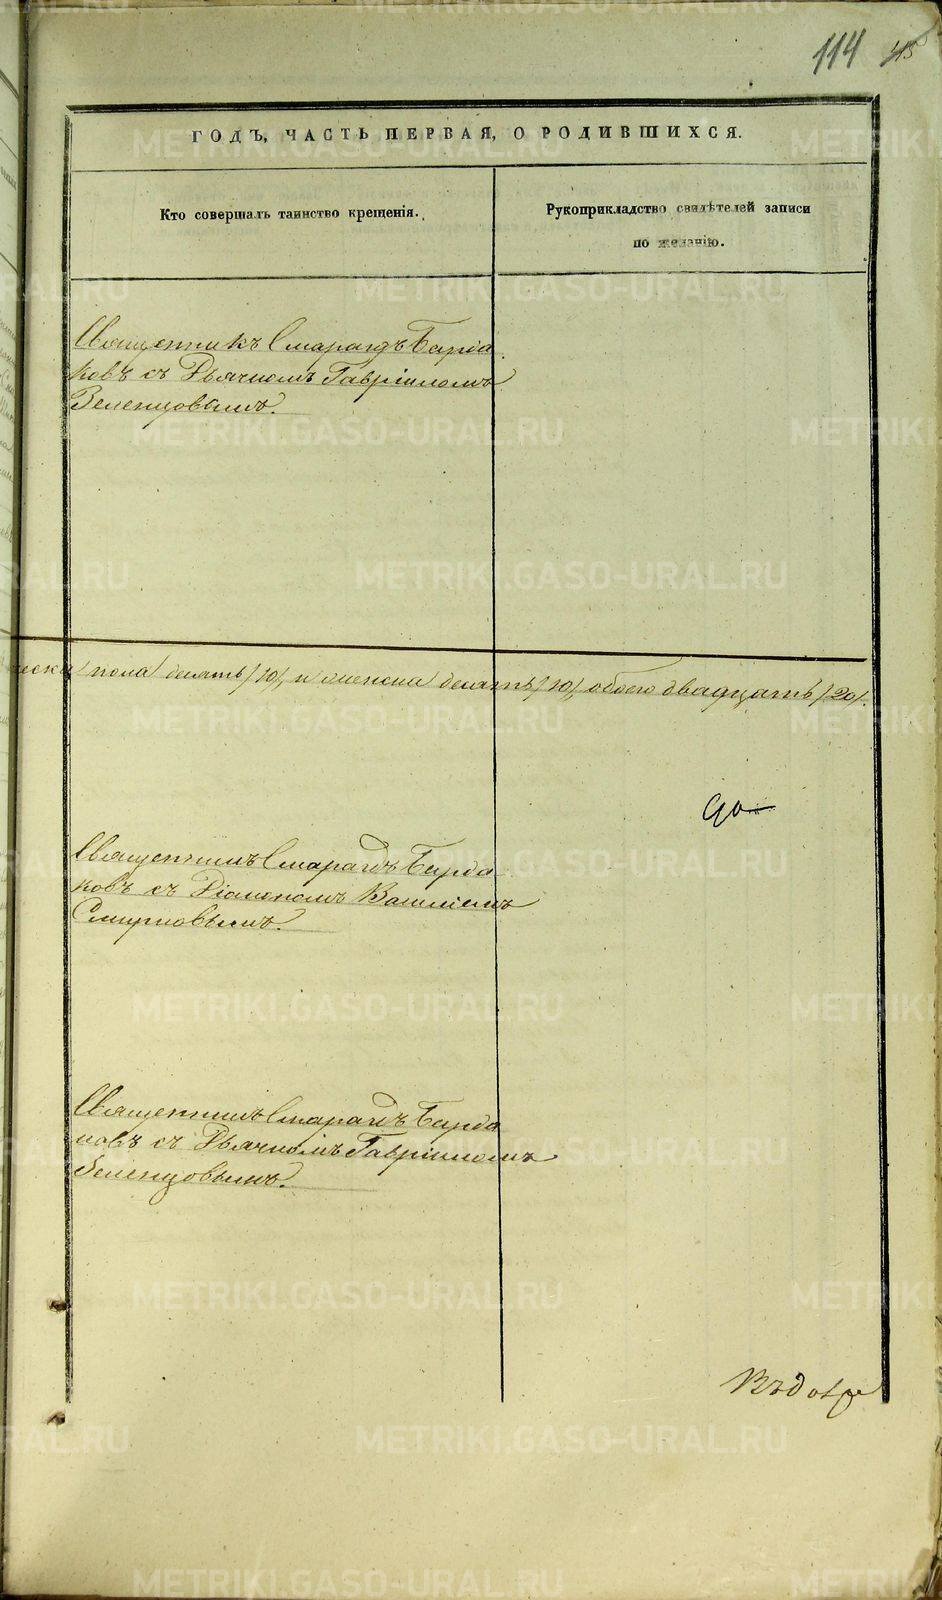 114 45
ГОДЪ, ЧАСТЬ ПЕРВАЯ, О РОДИВШИХСЯ.
Кто совершалъ таинство крещенія.
Рукоприкладство свидѣтелей записи
по желанію.
Священникъ Смарагдъ Бирда
ковъ съ Дьячкомъ Гавріиломъ
Зеленцовымъ.
ческа пола десять /10/, и женска десять /10/, обоего двадцать /20/.
Священникъ Смарагдъ Бирда
ковъ съ Діакономъ Василіемъ
Смирновымъ.
Священникъ Смарагдъ Бирда
ковъ съ Дьячкомъ Гавріиломъ
Зеленцовымъ.
METRIKI.GASO-URAL.RU